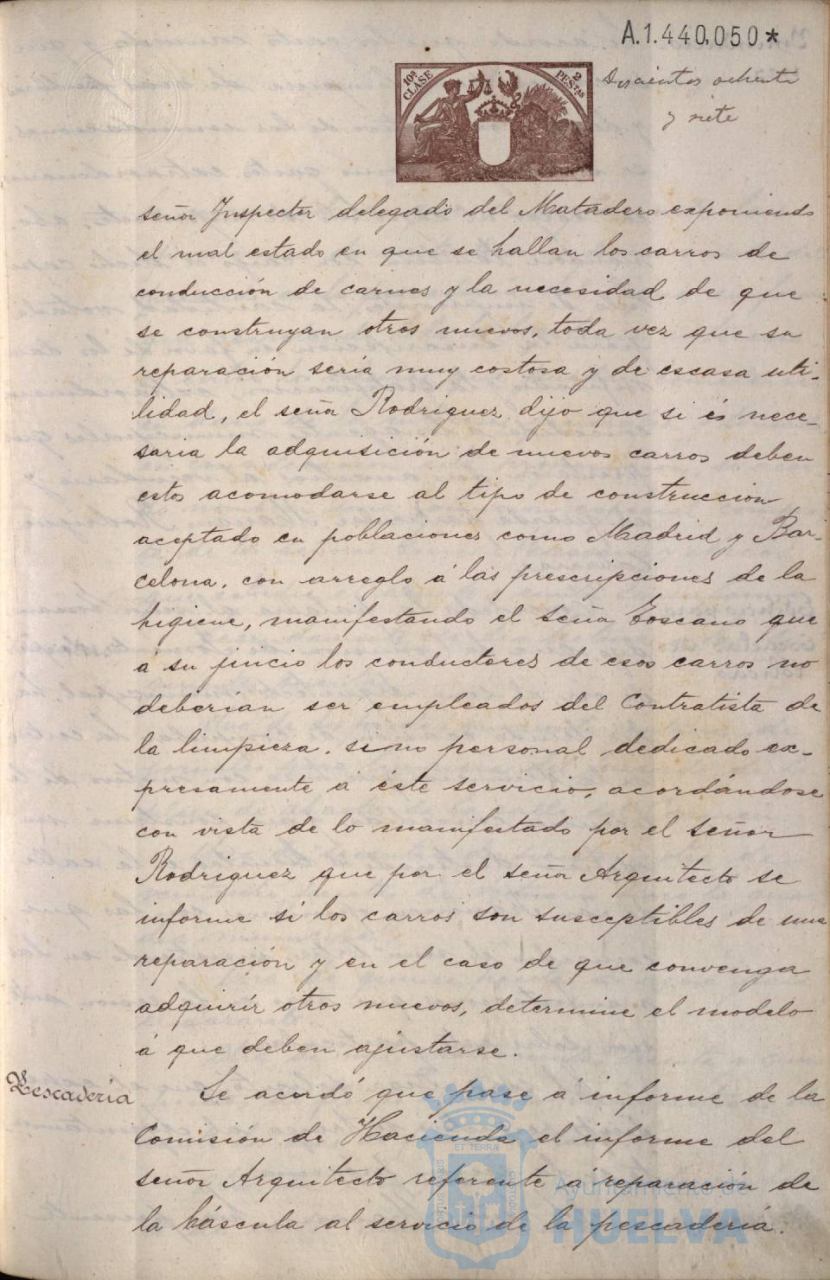 A.1.440.050*
10ª CLASE
2 PESETAS
Doscientos ochenta
y siete
señor Inspector delegado del Matadero exponiendo
el mal estado en que se hallan los carros de
conducción de carnes y la necesidad de que
se construyan otros nuevos, toda vez que su
reparación sería muy costosa y de escasa uti-
lidad, el señor Rodriguez dijo que si és nece-
saria la adquisición de nuevos carros deben
estos acomodarse al tipo de construccion
aceptado en poblaciones como Madrid y Bar-
celona, con arreglo á las prescripciones de la
higiene, manifestando el señor Toscano que
á su juicio los conductores de esos carros no
deberian ser empleados del Contratista de
la limpieza, sino personal dedicado ex-
presamente á éste servicio, acordándose
con vista de lo manifestado por el señor
Rodriguez que por el señor Arquitecto se
informe si los carros son susceptibles de una
reparación y en el caso de que convenga
adquirír otros nuevos, determine el modelo
á que deben ajustarse.
Pescadería
Se acordó que pase á informe de la
Comisión de Hacienda el informe del
señor Arquitecto referente á reparación de
la báscula al servicio de la pescadería.
Ayuntamiento de
HUELVA